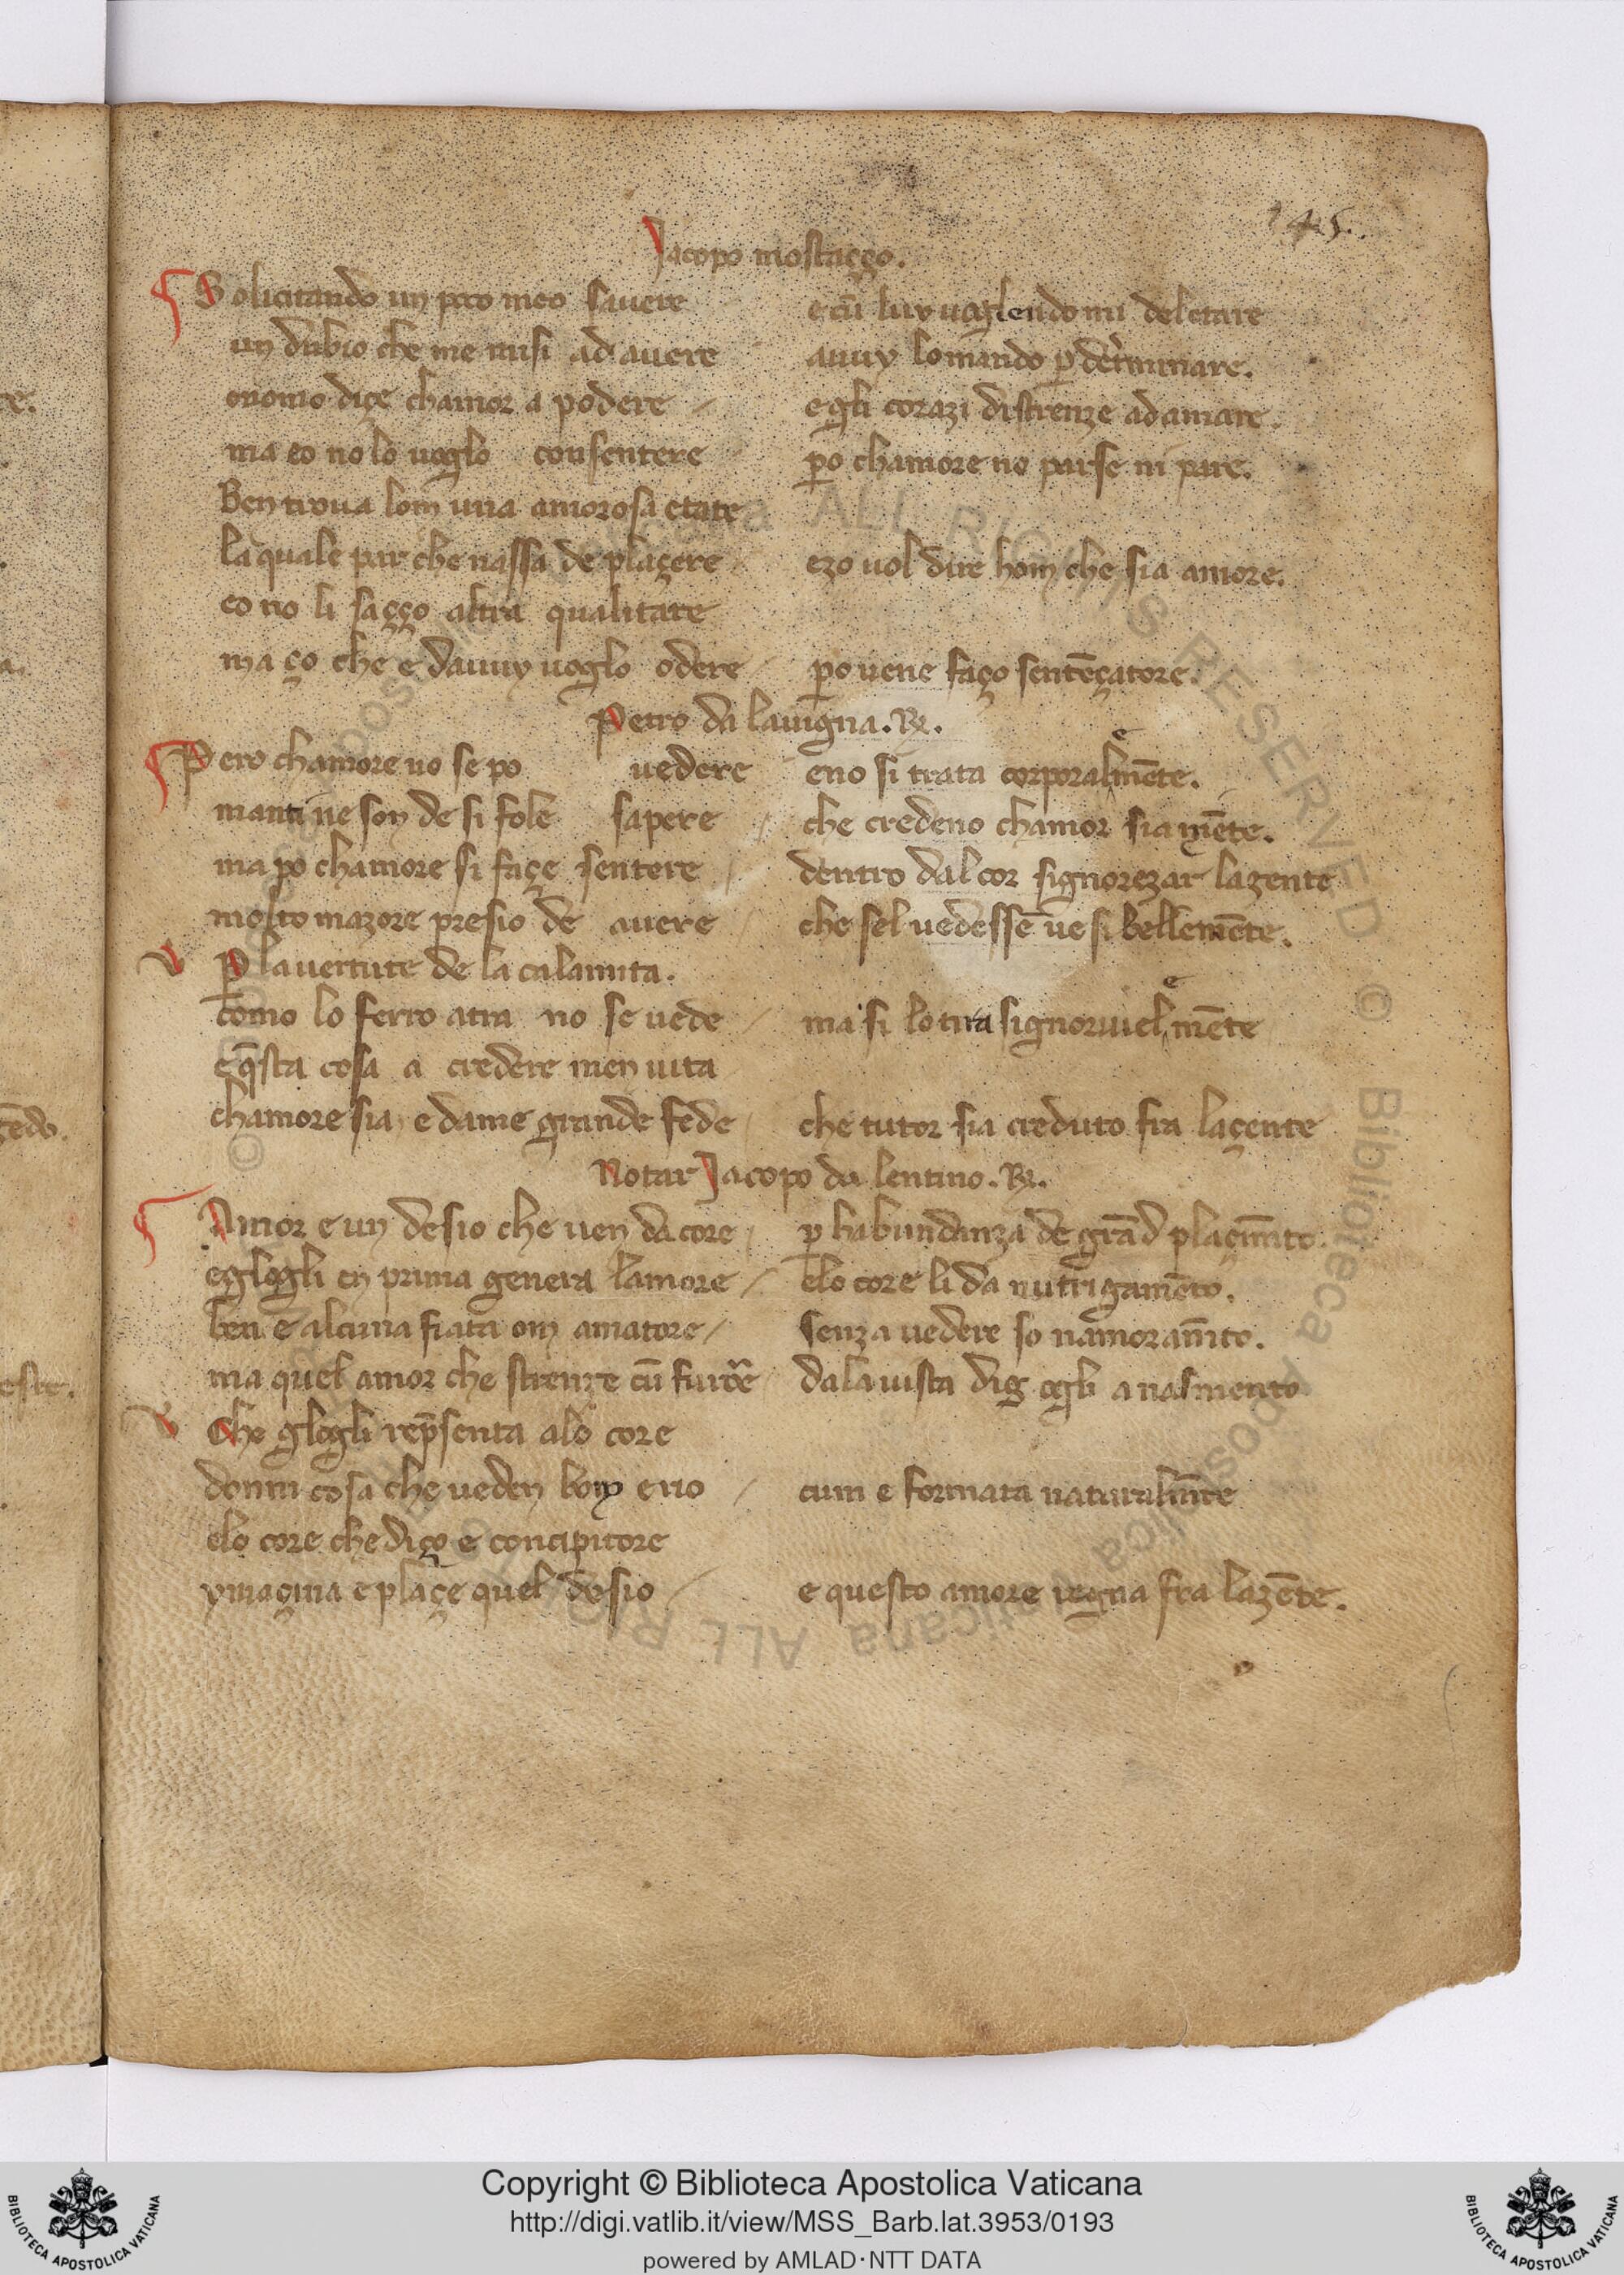 145.
Iacopo mostaçço.
Solicitando un poco meo sauere e cū luy uoglendo mi deletare
un dubio che me misi ad auere a uuy lo mando p̱ det̄minare.
onomo diçe chamor a podere e gli corazi distrenze ad amare.
ma eo no lo uoglo consentere p̱o chamore no parse ni pare.
Ben troua lom una amorosa etate
la quale par che nassa de plaçere ezo uol dire hom che sia amore.
eo no li saçço altra qualitate
ma ço che e dauuy uoglo odere p̱o uene faço sentēçatore.
Petro da lauigna. R͏.
Pero chamore no se po uedere eno si trata corporalmēte.
manti ne son de si fole sapere che credeno chamor sia niēte.
ma po chamore si façe sentere dentro dal cor signorezar la zente
molto mazore presio de auere che sel uedessē uesibellemēte.
P̱ la uertute de la calamita.
como lo ferro atra no se uede ma si lo tira signoriuelmēte
e q̄sta cosa a credere men uita
chamore sia e dame grande fede che tutor sia creduto fra la çente
Notar Iacopo da lentino. R͏.
Amor e un desio che uen da core p̱ habundanza de grād plaçim̄to.
egl ogli en prima genera lamore elo core li da nutrigamēto.
ben e alcuna fiata om amatore senza uedere so namoram̄to.
ma quel amor che strenze cū furore dala uista dig ogli a nasmento
Che gl ogli rep̄senta alo core
donni cosa che ueden bon e rio cum e formata naturalm̄te
elo core che di ço e concipitore
ymaçina e plaçe quel desio e questo amore regna fra la zēte.
Copyright © Biblioteca Apostolica Vaticana
http://digi.vatlib.it/view/MSS_Barb.lat.3953/0193
powered by AMLAD·NTT DATA
BIBLIOTECA APOSTOLICA VATICANA
BIBLIOTECA APOSTOLICA VATICANA